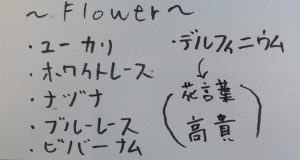 ～Flower～
・ユーカリ
・ホワイトレース
・ナヅナ
・ブルーレース
・ビバーナム
・デルフィニウム
↓
(花言葉
高貴)